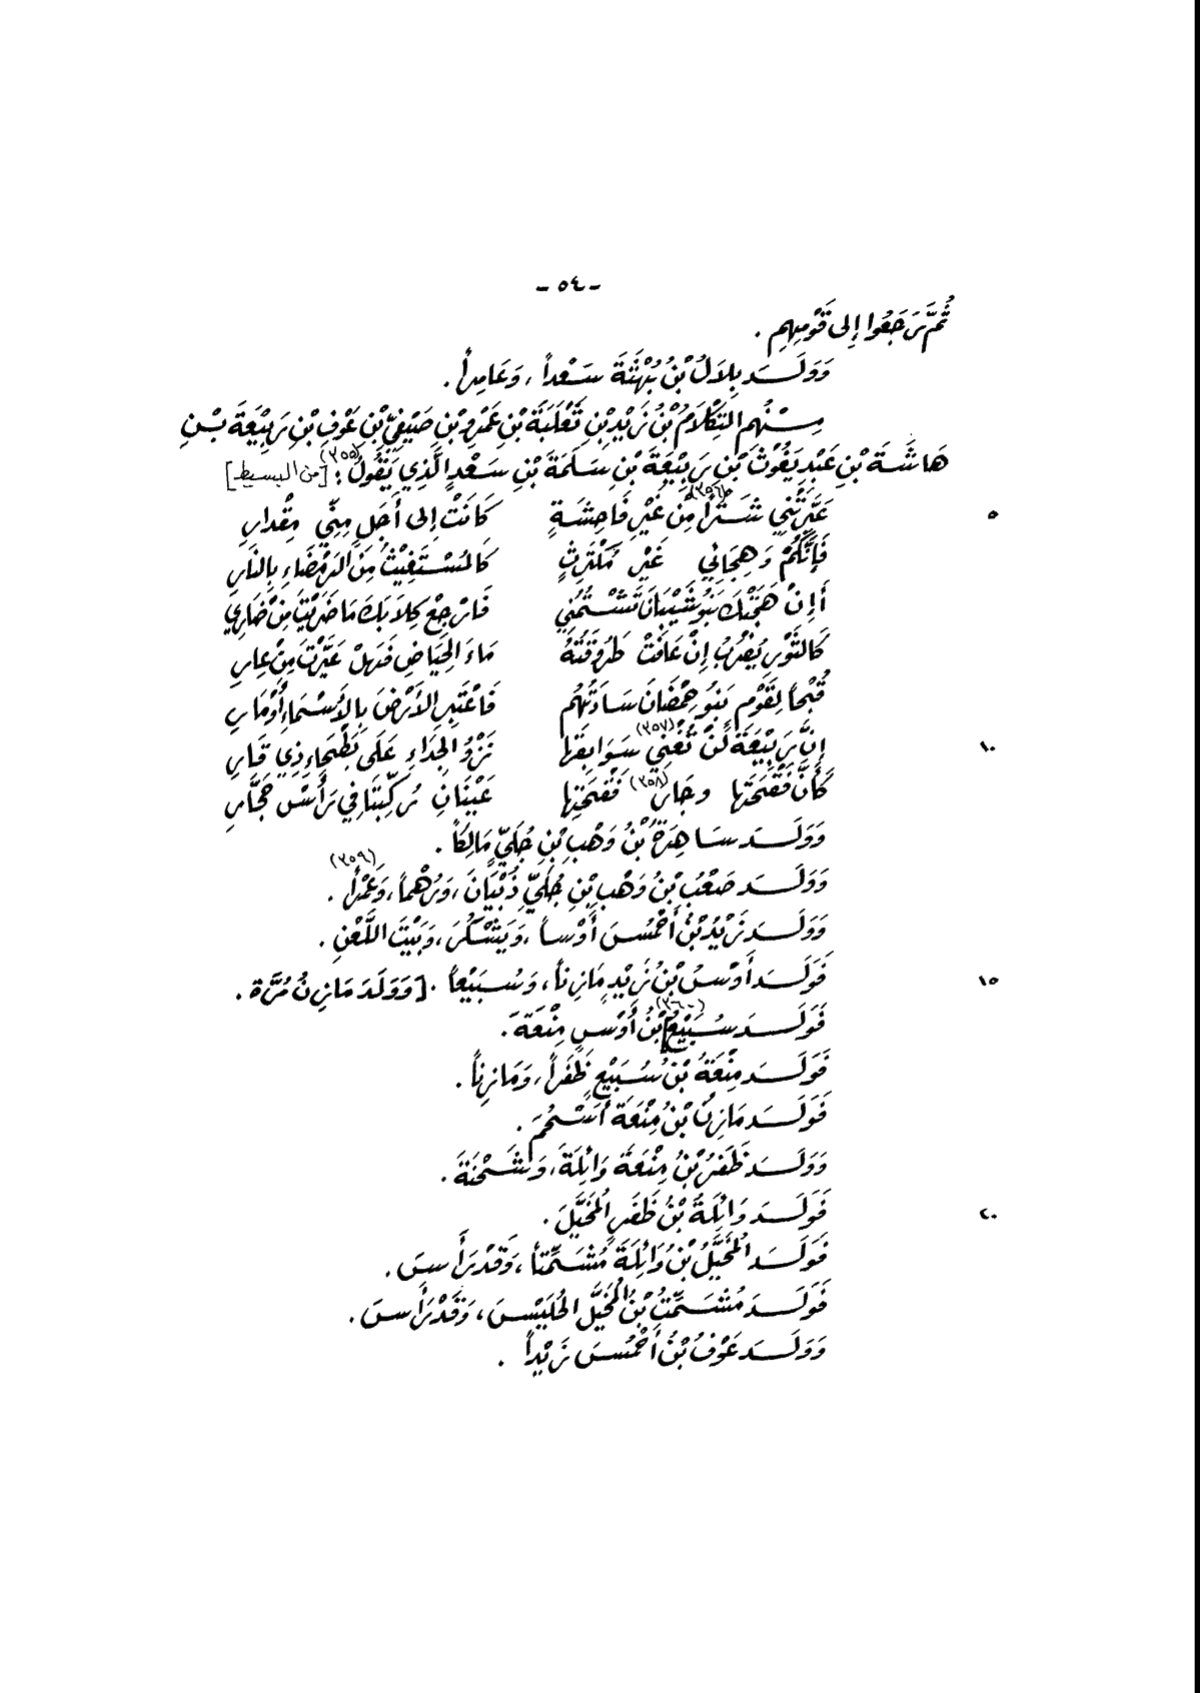 - ٥٤ -
ثُمَّ رَجَعُوا إِلى قَوْمِهِمِ .
وَوَلَـدَ بِلَالُ بْنُ بُهْثَةَ سَعْداً، وَعَامِراً .
مِـنْـهُم التَّكْلَامُ بْنُ زَيْدِ بْنِ ثَعْلَبَةَ بْنِ عَمْرِو بْنِ صَيْفِيِّ بْنِ عَوْفِ بْنِ رَبِيْعَةَ بْـنِ
هَاشَةَ بْنِ عَبْدِ يَغُوْثَ بْنِ رَبِيْعَةَ بْنِ سَلَمَةَ بْنِ سَعْدٍ الَّذِي يَقُولُ (٣٥٥) : [من البسيط]
عَيَّرْتَنِي شَتَراً (٣٥٦) مِن غَيْرِ فَاحِشَةٍ كَانَتْ إِلى أَجَلٍ مِنِّي مِقْدَارِ ٥
فَإِنَّكُمْ وَهِجَائِي غَيْرَ مُكْتَرِثٍ كَالمُسْـتَغِيْثِ مِنَ الرَّمْضَاءِ بِالنَّارِ
أَإِنْ هَجَتْكَ بَنُو شَيْبَانَ تَشْتُمُنِي فَارْجِعْ كِلَابَكَ مَا ضَرَّيْتَ مِنْ ضَارِي
كَالثَّوْرِ يُضْرَبُ إِنْ عَافَتْ طَرُوقَتُهُ مَاءَ الحِيَاضِ فَهَلْ عَيَّرْتَ مِنْ عَارِ
قُبْحاً لِقَوْمٍ بَنُو هِمْضَانَ سَادَتُهُم فَاعْتَبِرِ الأَرْضَ بِالأَسْمَاءِ أَوْ مَارِ
إِنَّ رَبِيْعَةَ لَنْ تُغْنِي (٣٥٧) سَوَابِقَهَا نَزْوُ الجِدَاءِ عَلَى بَطْحَاءِ ذِي قَارِ ١٠
كَأَنَّ فَقْحَتَهَا وجَارَ (٣٥٨) فَقْحَتِهَا عَيْنَانِ رُكِّبَتَا فِي رَأْسِ حَجَّارِ
وَوَلَـدَ سَاهِرَةُ بْنُ وَهْبِ بْنِ جُلَيٍّ مَالِكاً .
وَوَلَـدَ صَعْبُ بْنُ وَهْبِ بْنِ جُلَيٍّ ذُبْيَانَ، وَرُهْماً، وَعَمْراً (٣٥٩) .
وَوَلَـدَ زَيْدُ بْنُ أَحْمُسَ أَوْساً ، وَيَشْكُرَ ، وَبَيْتَ اللَّعْنِ .
فَوَلَـدَ أَوْسُ بْنُ زَيْدٍ مَازِناً، وَسُبَيْعاً . [وَوَلَدَ مَازِنُ مُرَّة . ١٥
فَوَلَـدَ سُبَيْعُ] (٣٦٠) بْنُ أَوْسٍ مِنْعَةَ .
فَوَلَـدَ مِنْعَةُ بْنُ سُبَيْعٍ ظَفَراً، وَمَازِناً .
فَوَلَـدَ مَازِنُ بْنُ مِنْعَةَ أَسْـحُمَ .
وَوَلَـدَ ظَفَرُ بْنُ مِنْعَةَ وَائِلَةَ، وَشَحْنَةَ .
فَوَلَـدَ وَائِلَةُ بْنُ ظَفَرٍ المُخَيَّلَ . ٢٠
فَوَلَـدَ المُخَيَّلُ بْنُ وَائِلَةَ مُشَمِّتاً ، وَقَدْ رَأَسَ .
فَوَلَـدَ مُشَمِّتُ بْنُ المُخَيَّلِ الحُلَيْسَ ، وَقَدْ رَأَسَ .
وَوَلَـدَ عَوْفُ بْنُ أَحْمُسَ زَيْداً .